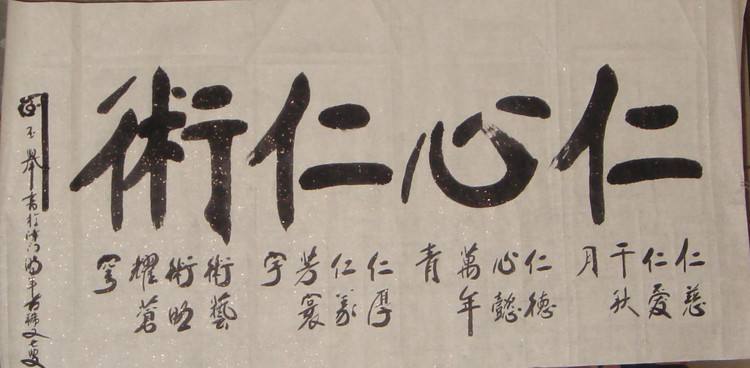 仁心仁術
仁慈
仁愛
千秋
月
仁德
心懿
萬年
青
仁厚
仁義
芳寰
宇
術藝
術
耀蒼
穹
書於津門